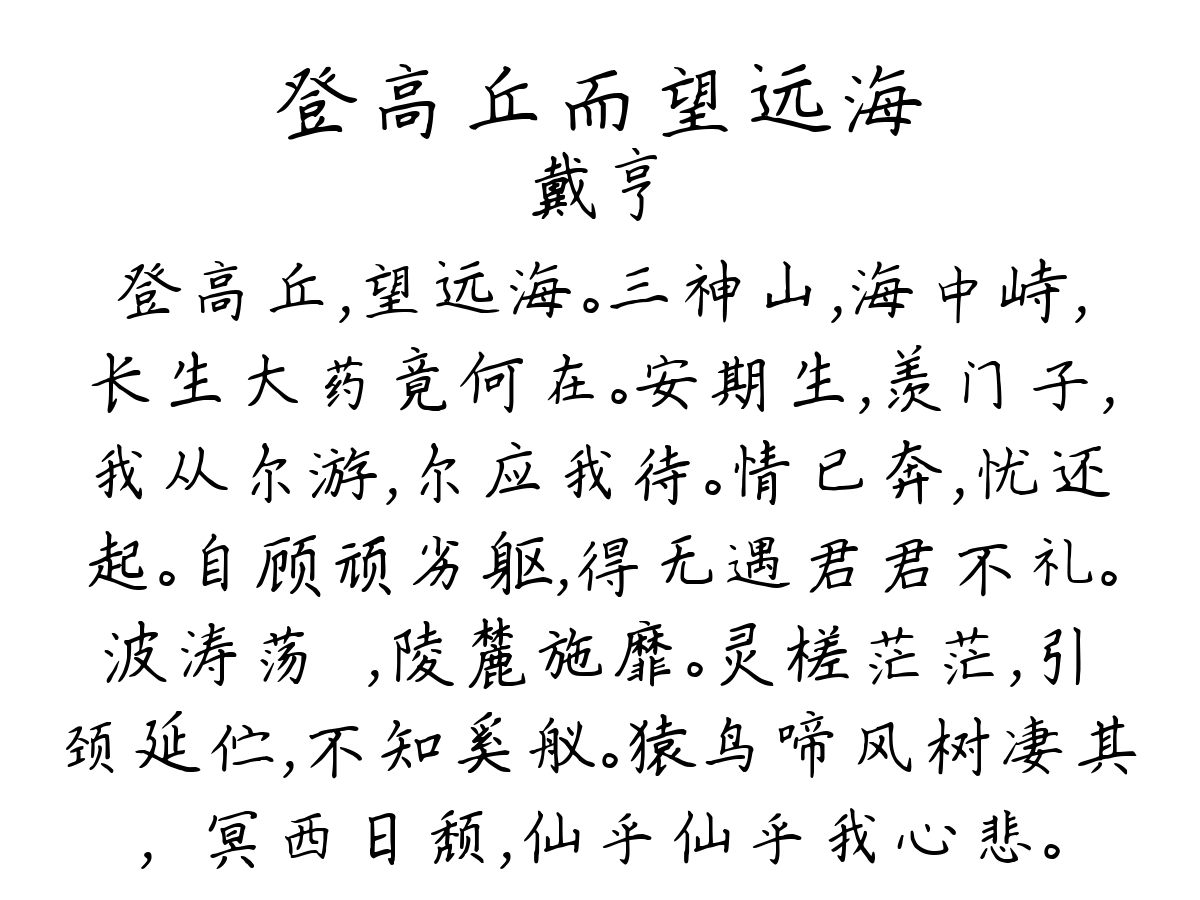 登高丘而望远海
戴亨
登高丘,望远海。三神山,海中峙,
长生大药竟何在。安期生,羡门子,
我从尔游,尔应我待。情已奔,忧还
起。自顾顽劣躯,得无遇君君不礼。
波涛荡 ,陵麓施靡。灵槎茫茫,引
颈延伫,不知奚舣。猿鸟啼风树凄其
, 冥西日颓,仙乎仙乎我心悲。